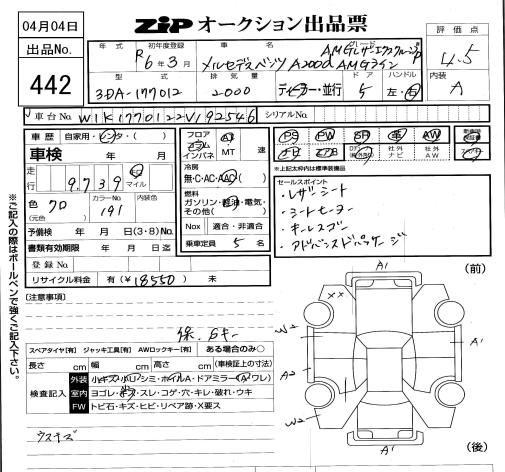 04月04日
ZIP オークション出品票
出品No.
442
評価点
4.5
内装
A
年式
初年度登録
R6年3月
車名
グレード
メルセデスベンツ A200d AMGライン
AMGレザーエクスクルーシブP
型式
3DA-177012
排気量
2000
ディーラー・並行
ドア
5
ハンドル
左・右
車台No.
W1K1770122V192546
シリアルNo.
車歴
自家用・レンタ・( )
車検
年 月
走行
9,739
km
マイル
色
クロ
(元色)
カラーNo.
191
内装色
予備検
年 月 日(3・8)No.
書類有効期限
年 月 日迄
登録No.
リサイクル料金
有(¥18550) 未
フロア
コラム
インパネ
AT
MT
速
冷房
無・C・AC・AAC
燃料
ガソリン・軽油・電気・
その他( )
Nox
適合・非適合
乗車定員
5
名
PS
PW
SR
革
AW
ナビ
エアB
社外
ナビ
社外
AW
*上記太枠内は標準装備品
セールスポイント
・レザーシート
・シートヒーター
・キーレスゴー
・アドバンスドパッケージ
[注意事項]
保.Sキー
スペアタイヤ[有] ジャッキ工具[有] AWロックキー[有] ある場合のみ○
長さ cm 幅 cm 高さ cm (車検証上の寸法)
検査記入
外装
小キズ・小U・シミ・ホイルA・ドアミラー(A・ワレ)
室内
ヨゴレ・キズ・スレ・コゲ・穴・キレ・破れ・ウキ
FW
トビ石・キズ・ヒビ・リペア跡・X要ス
ウスキズ
※ご記入の際はボールペンで強くご記入下さい。
(前)
A1
××
W2
A1
A2
W2
A1
(後)